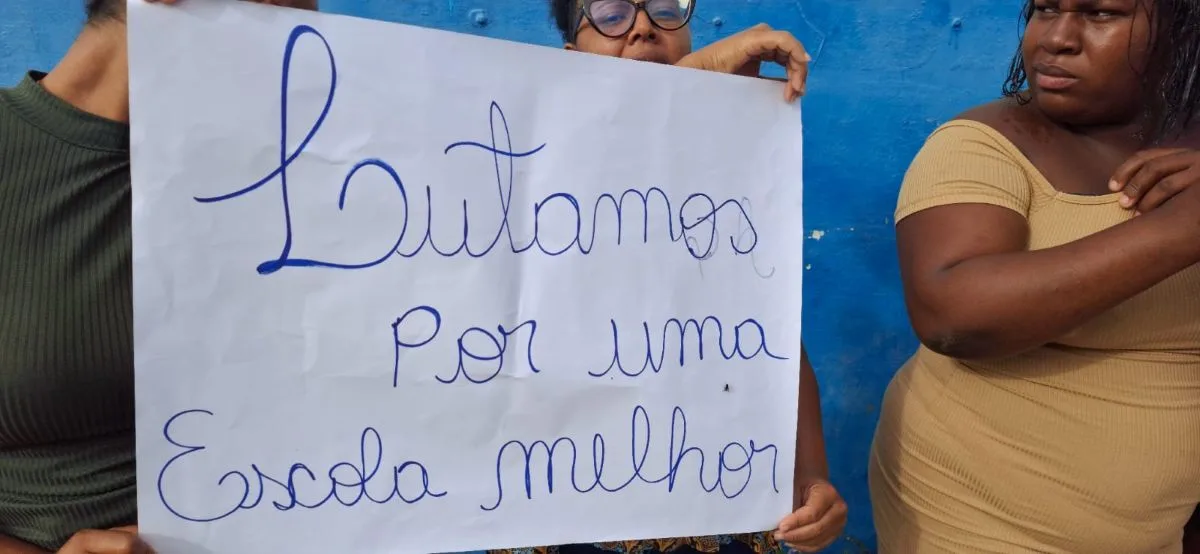 Lutamos
Por uma
Escola melhor